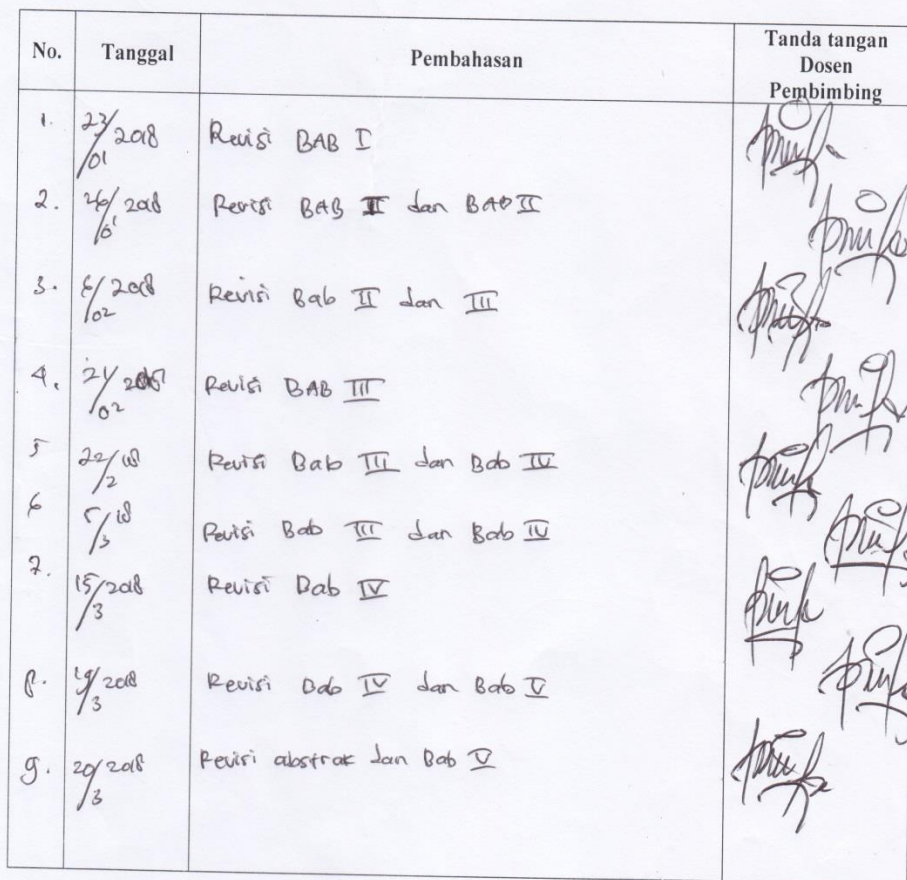 No. Tanggal Pembahasan Tanda tangan
Dosen
Pembimbing
1. 23/01 2018 Revisi BAB I
2. 26/01 2018 Revisi BAB II dan BAB II
3. 6/02 2018 Revisi Bab II dan III
4. 21/02 2018 Revisi BAB III
5 22/2 18 Revisi Bab III dan Bab IV
6 5/3 18 Revisi Bab III dan Bab IV
7. 15/3 2018 Revisi Bab IV
8. 19/3 2018 Revisi Bab IV dan Bab V
9. 20/3 2018 Revisi abstrak dan Bab V